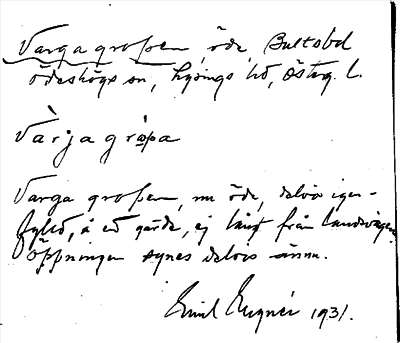 Varga gropen, öde, Bultsbol
Ödeshögs sn, Lysings hd, Österg. l.
Vàrjagròpa
Varga gropen, nu öde, delvis igen-
fylld, å ed gärde, ej långt från landsvägen
öppningen synes delvis ännu.
Emil 1931.